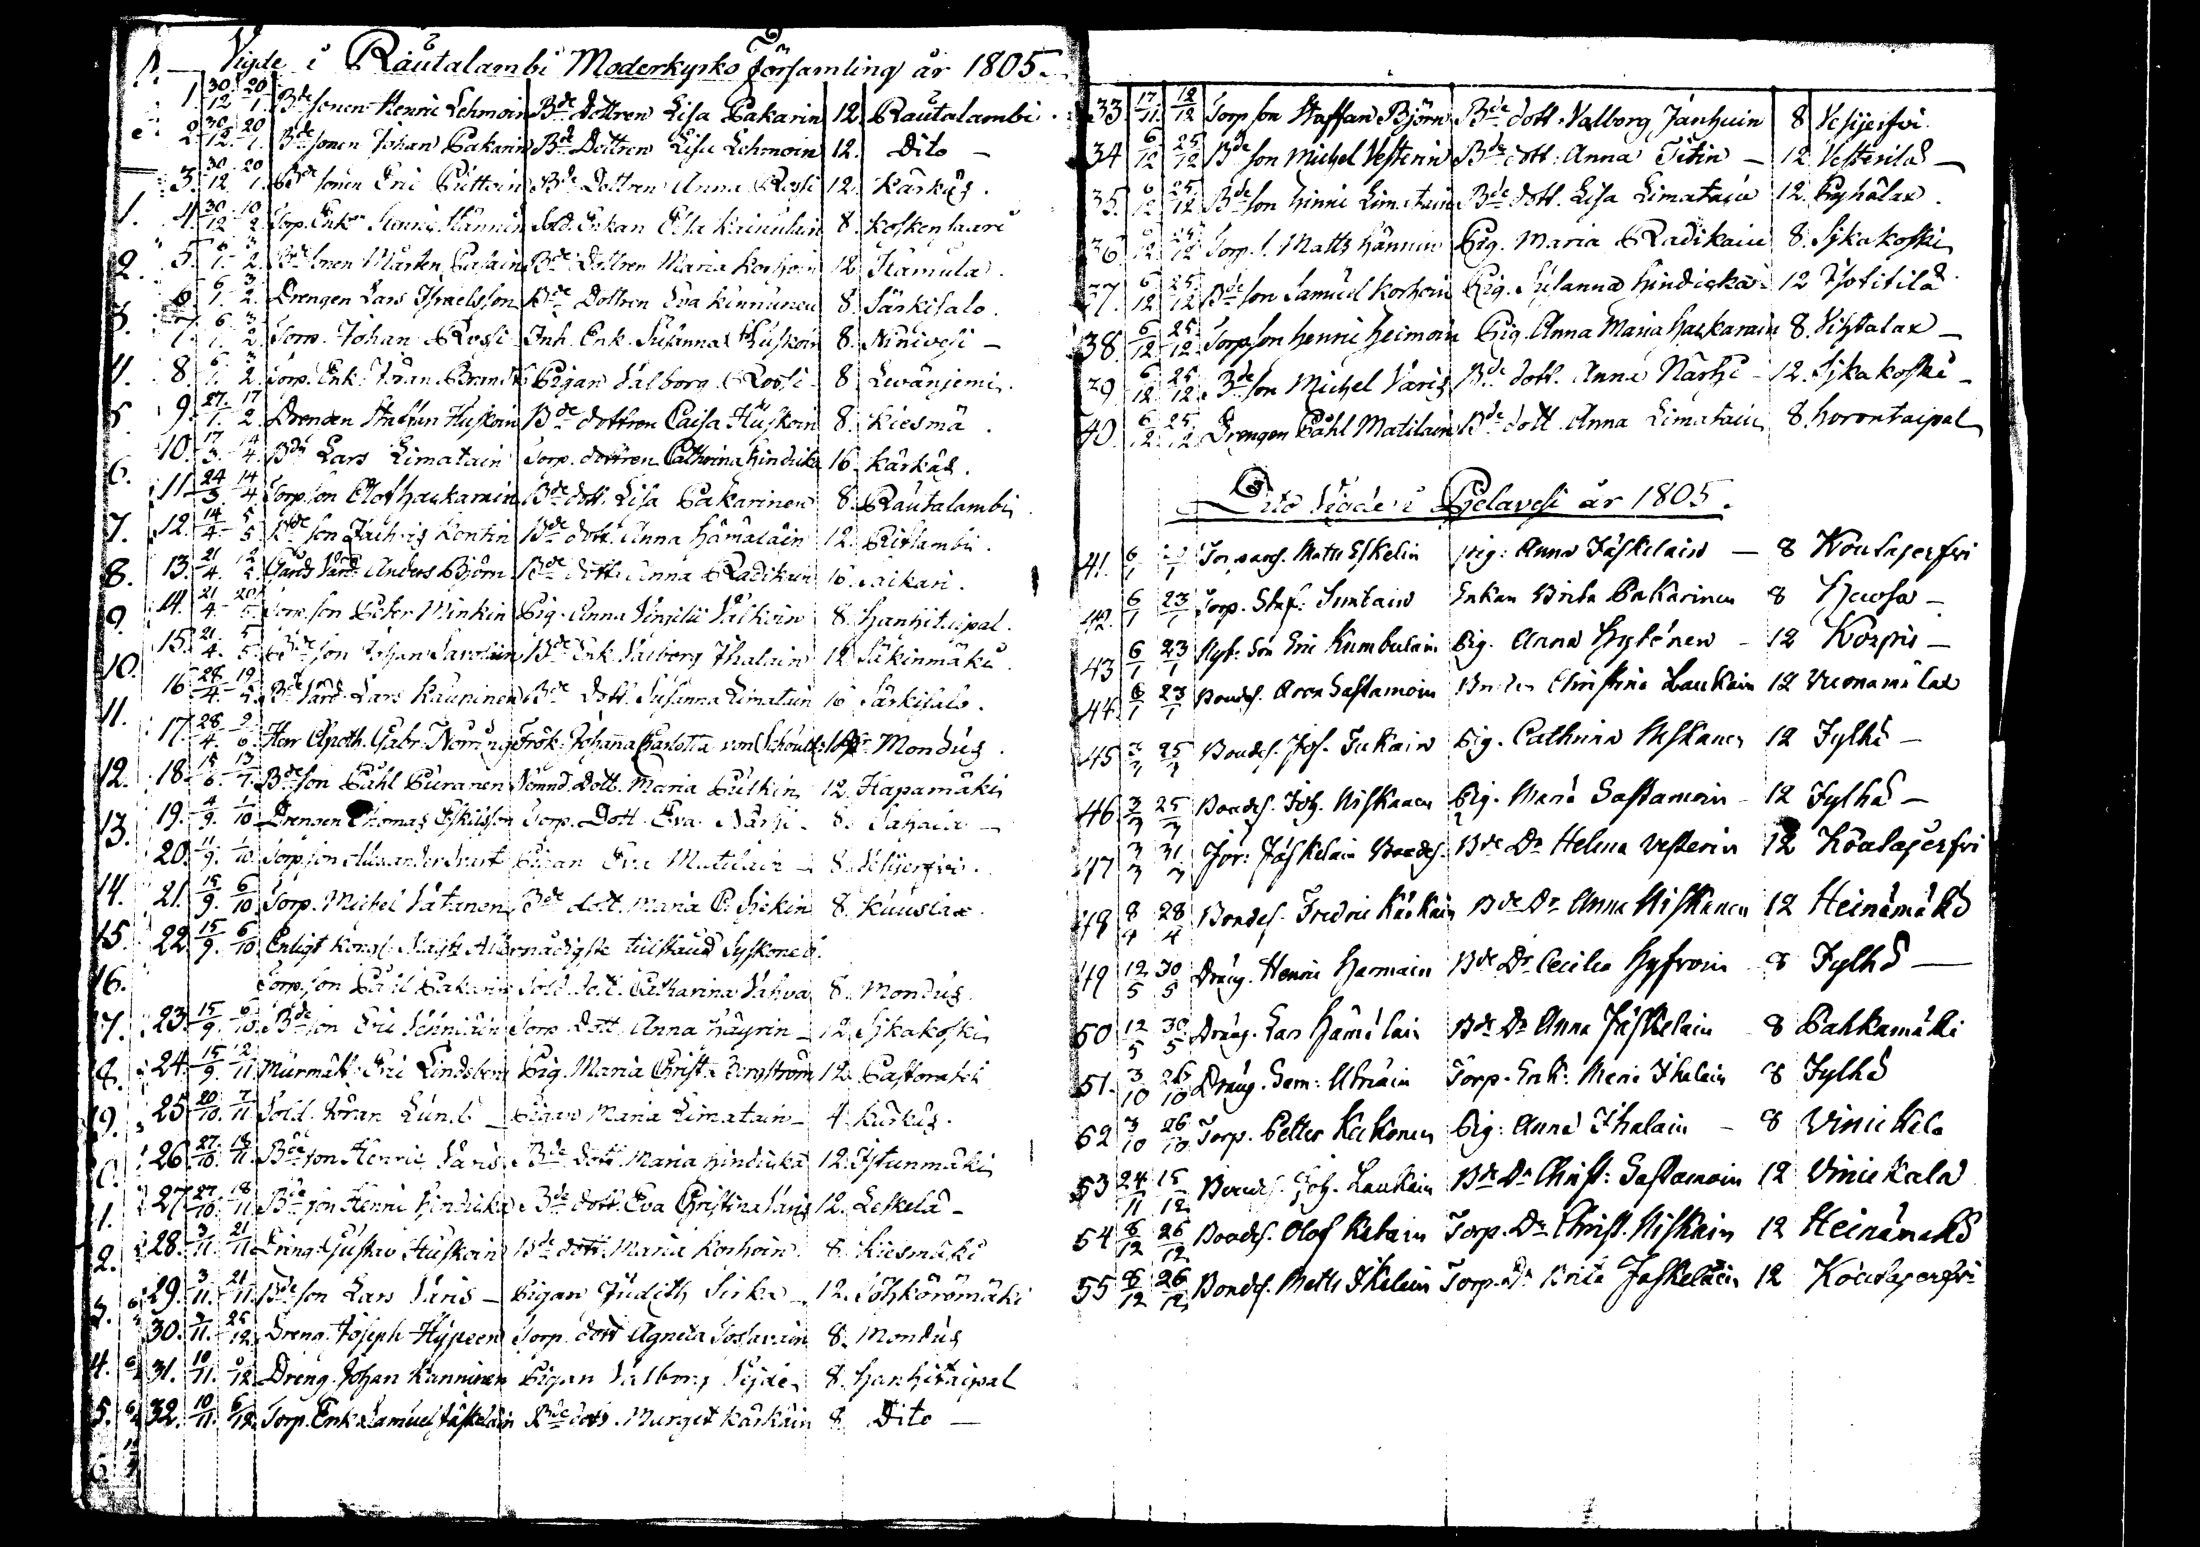 Vigde i Rautalambi Moderkyrko Församling år 1805.
1. 30/12 20/1 Bde sonen Henric Lehmoin Bde Dottren Lisa Pakarin 12. Rautalambi
2. 30/12. 20/1. Bde sonen Johan Pakarin Bde Dottren Lisa Lehmoin 12. Dito –
3. 30/12 20/1. Bde sonen Eric Puttoin Bde Dottren Anna Rossi 12. Kärkäs.
4. 30/12 10/2. Torp. Enk. Hännin Sold. Enkan Elsa Kainulain 8. Koskenlaari
5. 6/1. 3/2. Bde sonen Mårten Bde Dottren Maria Korhoin 12 Hamula.
6. 6/1. 3/2. Drengen Lars Israelsson Bde Dottren Eva Kinnunen 8. Särkisalo.
7. 6/1. 3/2. Torp. Johan Rossi Inh. Enk. Susanna Huskoin 8. Ninivesi –
8. 6/1. 3/2. Torp. Enk. Göran Brandt Pigan Valborg Rossi 8 Levänjemi.
9. 27/1. 17/2 Drengen Staffan Huskoin Bde dottren Caisa Huskoin 8. Kiesmä.
10. 17/3. 14/4. Bdn Lars Limatain Torp. dottren Cathrina Hindrika 16. Kärkäs.
11. 24/3 14/4 Torp. son Olof Haskarain Bde dott. Lisa Pakarinen 8. Rautalambi
12. 14/4. 5/5 Bde son Zachris Kontin Bde dott. Anna Hämäläin 12. Pitslambi.
13. 21/4. Anders Björn Bde dott. Anna Radikain 16. Saikari.
14. 21/4. 20/5 Torp. son Peter Minkin Pig. Anna 8. Hanhitaipal.
15. 21/4. 5/5. Bde son Johan Savolain Bde Enk. Valborg Ihalain 12 Säkinmäki.
16 28/4. 19/5. Lars Kauninen Bde Dott. Susanna Limatain 16 Särkisalo.
17. 28/4. 9/6. Herr Apoth. Gabr. Norring Frök. Johanna Carlotta von Schoultz Mondus.
18. 15/6. 13/7. Bde son Påhl Puranen Nämnd. Dott. Maria Pulkin 12. Hapamäki
19. 4/9. 1/10 Drengen Thomas Eskilsson Torp. Dott. Eva Närhi. 8.
20. 11/9. 1/10. Torp. son Alexander Svart Pigan Eva Matilain – 8. Vesijerfvi.
21. 15/9. 6/10. Torp. Michel Vatanen Bde dott. Maria 8. Kuuslax.
22. 15/9. 6/10. Enligt Kongl. Allernådigste
Torp. son Påhl Pakarin Sold. dott. Catharina Vahva 8. Mondus.
23. 15/9. 6/10. Bde son Eric Torp. Dott. Anna Häyrin – 12. Sjkakoski
24. 15/9. 2/11 Murmäst. Eric Lindeberg Pig. Maria Christ. Bergström 12. Pastoratet
25. 20/10. 7/11 Sold. Göran Lund – Pigan Maria Limatain – 4. Kärkäs.
26. 27/10. 18/11. Bde son Henric Varis Bde dott. Maria Hindrika 12. Istunmäki
27. 27/10. 18/11. Bde son Henric Hindrika Bde dott. Eva Christina Varis 12. Leskelä –
28. 3/11. 21/11. Dreng Gustav Huskoin Bde dott. Maria Korhoin 8. Kiesmäki
29. 3/11. 21/11. Bde son Lars Varis – Pigan Judith Sirka – 12. Söhkörömäki
30. 3/11. 25/12. Dreng. Joseph Hypeen Torp. dott Agneta 8. Mondus
31. 10/11. 6/12 Dreng. Johan Kanninen Pigan Valborg 8. Hanhitaipal
32. 10/11. 6/12. Torp. Enk. Samuel Jäskeläin Bde dott. Margit Kärkäin 8. Dito –
33 17/11. 12/12 Torp son Staffan Björn Bde dott. Valborg Janhuin 8 Vesijerfvi.
34 6/12 25/12 Bde son Michel Vesterin Bde dott. Anna Titin – 12. Vesterilä –
35. 6/12 25/12 Bde son Hinric Limatain Bde dott. Lisa Limatain 12. Pyhälax.
36 6/12 25/12 Torp. s. Matts Hännin Pig. Maria Radikain 8. Sjkakoski
37. 6/12 25/12 Bde son Samuel Korhoin Pig. Susanna Hindrika 12 Tyotitilä
38. 6/12. 25/12. Torp son Henric Heimoin Pig. Anna Maria Haskarain 8. Vihtalax –
39 6/12 25/12 Bde son Michel Varis Bde dott. Anna Närhi – 12. Sjkakoski –
40. 6/12. 25/12 Drengen Påhl Matilain Bde dott. Anna Limatain 8 Horontaipal
Dito Vigde i Pielavesi år 1805.
41. 6/1 Matts Eskelin Pig. Anna Jäskelain – 8 Koulajerfvi
42. 6/1 23/1 Torp. Staf. Suntain Enkan Brita Pakarinen 8
43 6/1 23/1 Nyb. Son Eric Kumbulain Pig. Anna Hytönen – 12 Korpis –
44. 6/1 23/1 Bondes. Aron Sastamoin Christina Laukain 12 Vuonamälax
45 3/3 25/3 Bondes. Joh. Tukain Pig. Cathrina Niskanen 12 Jylhä –
46 3/3 25/3 Bondes. Joh. Niskanen Pig. Maria Sastamoin – 12 Jylhä –
47 3/3 31/3 Jör. Jäskelain Bondes. Bde Dr Helena Vesterin 12 Koulajerfvi
48 8/4 28/4 Bondes. Fredric Kärkäin Bde Dr Anna Niskanen 12 Heinämäki
49 12/5 30/5 Dräng. Henric Hamain Bde Dr Cecilia Hyfvoin 8 Jylhä –
50 12/5 30/5 Dräng. Lars Hämälain Bde Dr Anna Jäskelain 8 Pakkamäki
51. 3/10 26/10 Dräng. Sam: Utriain Torp. Enk: Maria Ihalain 8 Jylhä
52 3/10 26/10 Torp. Petter Kekonen Pig: Anna Ihalain – 8 Viniekala
53 24/11 15/12 Bondes. Joh. Laukain Bde Dr Christ: Sastamoin 12 Viniekala
54 8/12 26/12 Bondes. Olof Katain Torp. Dr Christ. Niskain 12 Heinämäki
55 8/12 26/12 Bondes. Matts Ikelain Torp. Dr Brita Jäskeläin 12 Koulajerfvi